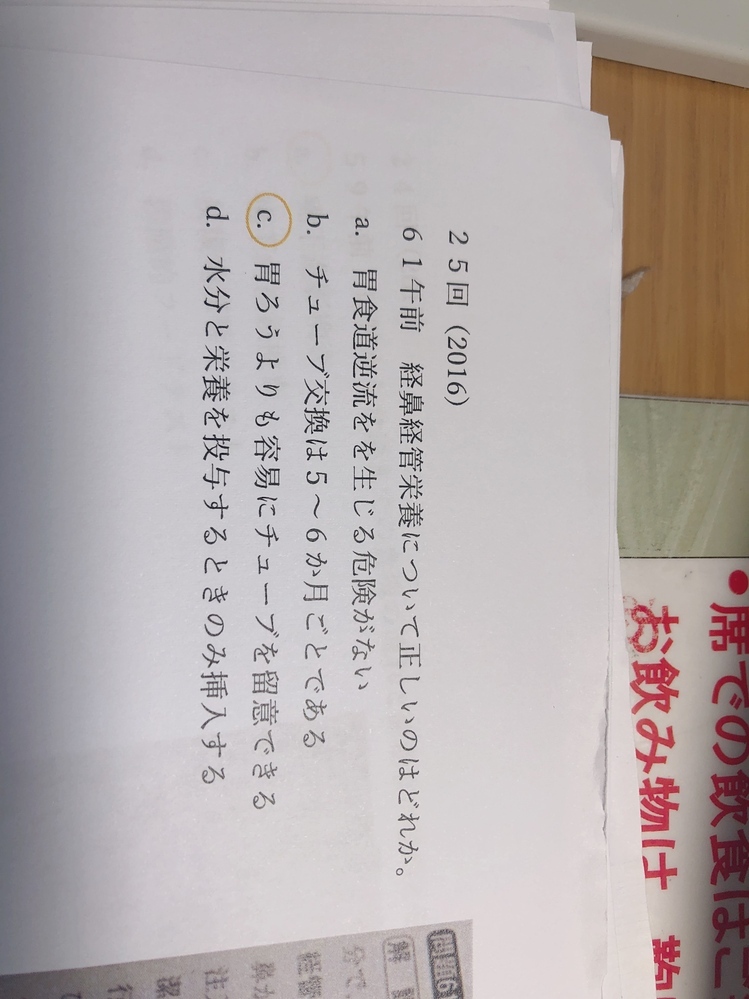 25回（2016）
61午前　経鼻経管栄養について正しいのはどれか。
a. 胃食道逆流をを生じる危険がない
b. チューブ交換は5～6か月ごとである
c. 胃ろうよりも容易にチューブを留意できる
d. 水分と栄養を投与するときのみ挿入する
●席での飲食はご
お飲み物は
問題61
解
分で
経